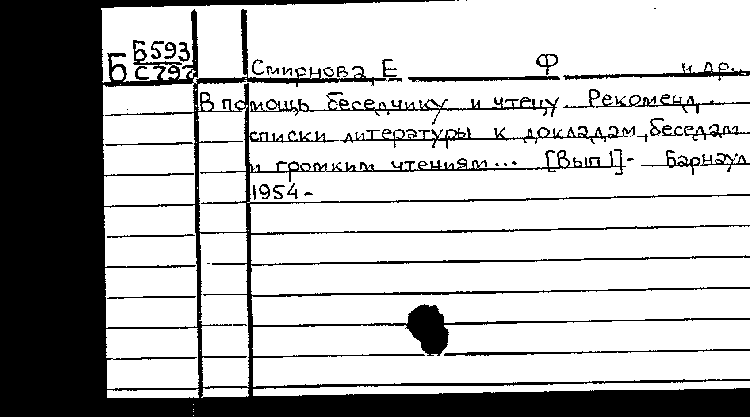 Б Б593
С292
Смирнова, Е Ф и др..
В помощь беседчику и чтецу. Рекоменд.
списки литературы к докладам, беседам
и громким чтениям... [Вып 1]- Барнаул
1954-